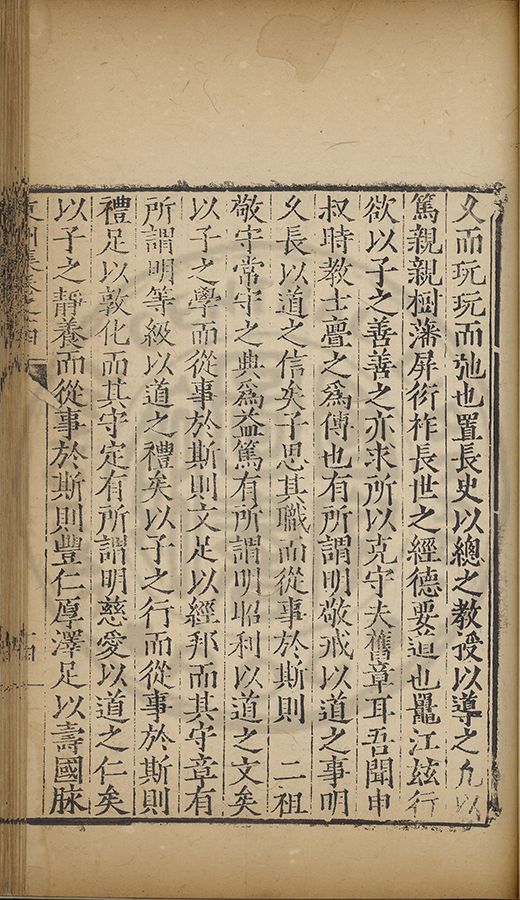 久而玩玩而弛也置長史以總之教授以導之凡以
篤親親樹藩屏衍祚長世之經德要道也鼂江茲行
欲以子之善善之亦求所以克守夫舊章耳吾聞申
叔時教士亹之爲傅也有所謂明敬戒以道之事明
久長以道之信矣子思其職而從事於斯則 二祖
敬守常守之典爲益篤有所謂明昭利以道之文矣
以子之學而從事於斯則文足以經邦而其守章有
所謂明等級以道之禮矣以子之行而從事於斯則
禮足以敦化而其守定有所謂明慈愛以道之仁矣
以子之靜養而從事於斯則豐仁厚澤足以壽國脉
集卷之四